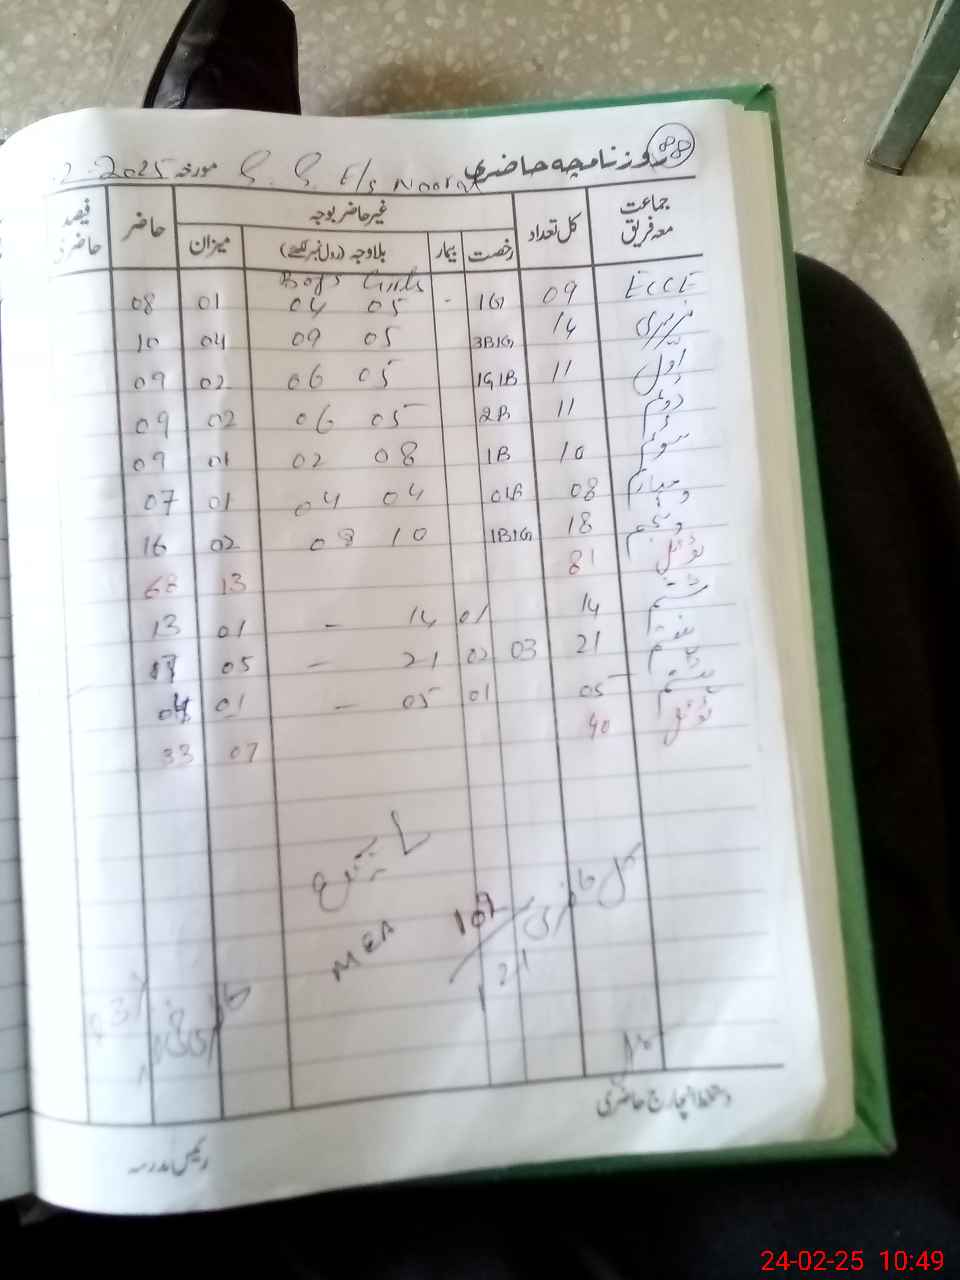 روزنامچہ حاضری 88
G. G. E/s Noora مورخہ 2-2025
جماعت معہ فریق کل تعداد غیر حاضر بوجہ حاضر فیصد حاضری
رخصت بیمار بلاوجہ (رول نمبر لکھئے) میزان
Boys Girls
ECCE 09 1G - 05 04 01 08
نرسری 14 3B1G 05 09 04 10
اول 11 1G1B 05 06 02 09
دوئم 11 2B 05 06 02 09
سوئم 10 1B 08 02 01 09
چہارم 08 01B 04 04 01 07
پنجم 18 1B1G 10 08 02 16
ٹوٹل 81 13 68
ششم 14 01 14 - 01 13
ہفتم 21 03 02 21 - 05
ہشتم 05 01 05 - 01 04
ٹوٹل 40 07 33
MEA
کل حاضری 101
121
دستخط انچارج حاضری
رئیس مدرسہ
24-02-25 10:49